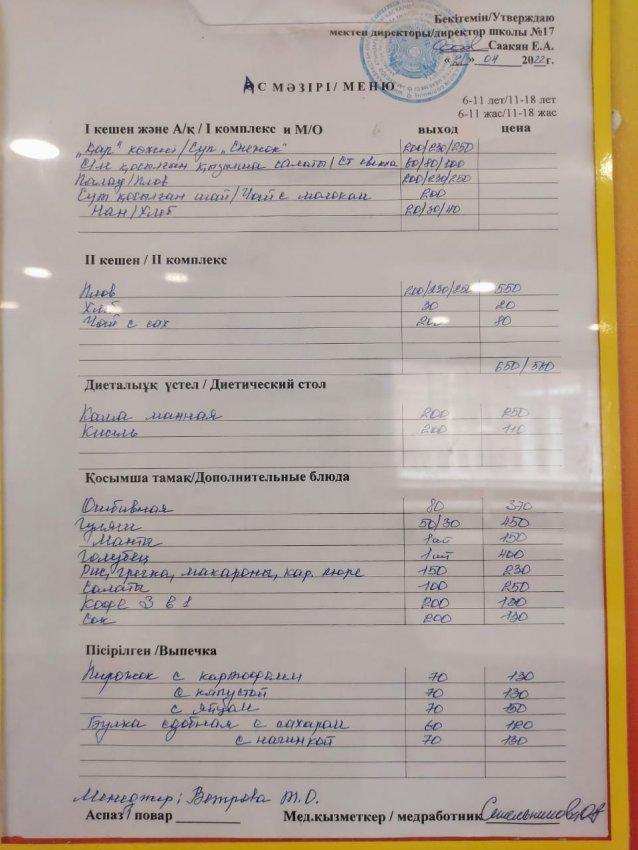 Бекітемін/Утверждаю
мектеп директоры/директор школы №17
Саакян Е.А.
«21» 04 2022г.
АС МӘЗІРІ/ МЕНЮ
6-11 лет/11-18 лет
6-11 жас/11-18 жас
І кешен және А/қ / І комплекс и М/О выход цена
„Қар" көжесі/Суп „Снежок" 200/230/250
салаты/Ст свекла 60/80/100
Палау/Плов 200/230/250
Сүт қосылған шай/Чай с молоком 200
Нан/Хлеб 20/30/40
ІІ кешен / ІІ комплекс
Плов 200/230/250 550
Хлеб 30 20
Чай с сах 200 80
650/
Диеталық үстел / Диетический стол
Каша манная 200 250
Кисель 200 110
Қосымша тамақ/Дополнительные блюда
Отбивная 80 370
Гуляш 50/30 450
Манты 1шт 150
Голубец 1шт 400
Рис, гречка, макароны, кар. пюре 150 230
Салаты 100 250
Кофе 3 в 1 200 130
Сок 200 130
Пісірілген /Выпечка
Пирожок с картофелем 70 130
с капустой 70 130
с яйцом 70 150
Булка сдобная с сахаром 60 120
с начинкой 70 130
Менеджер: Ветрова Т.О.
Аспаз / повар Мед.қызметкер / медработник